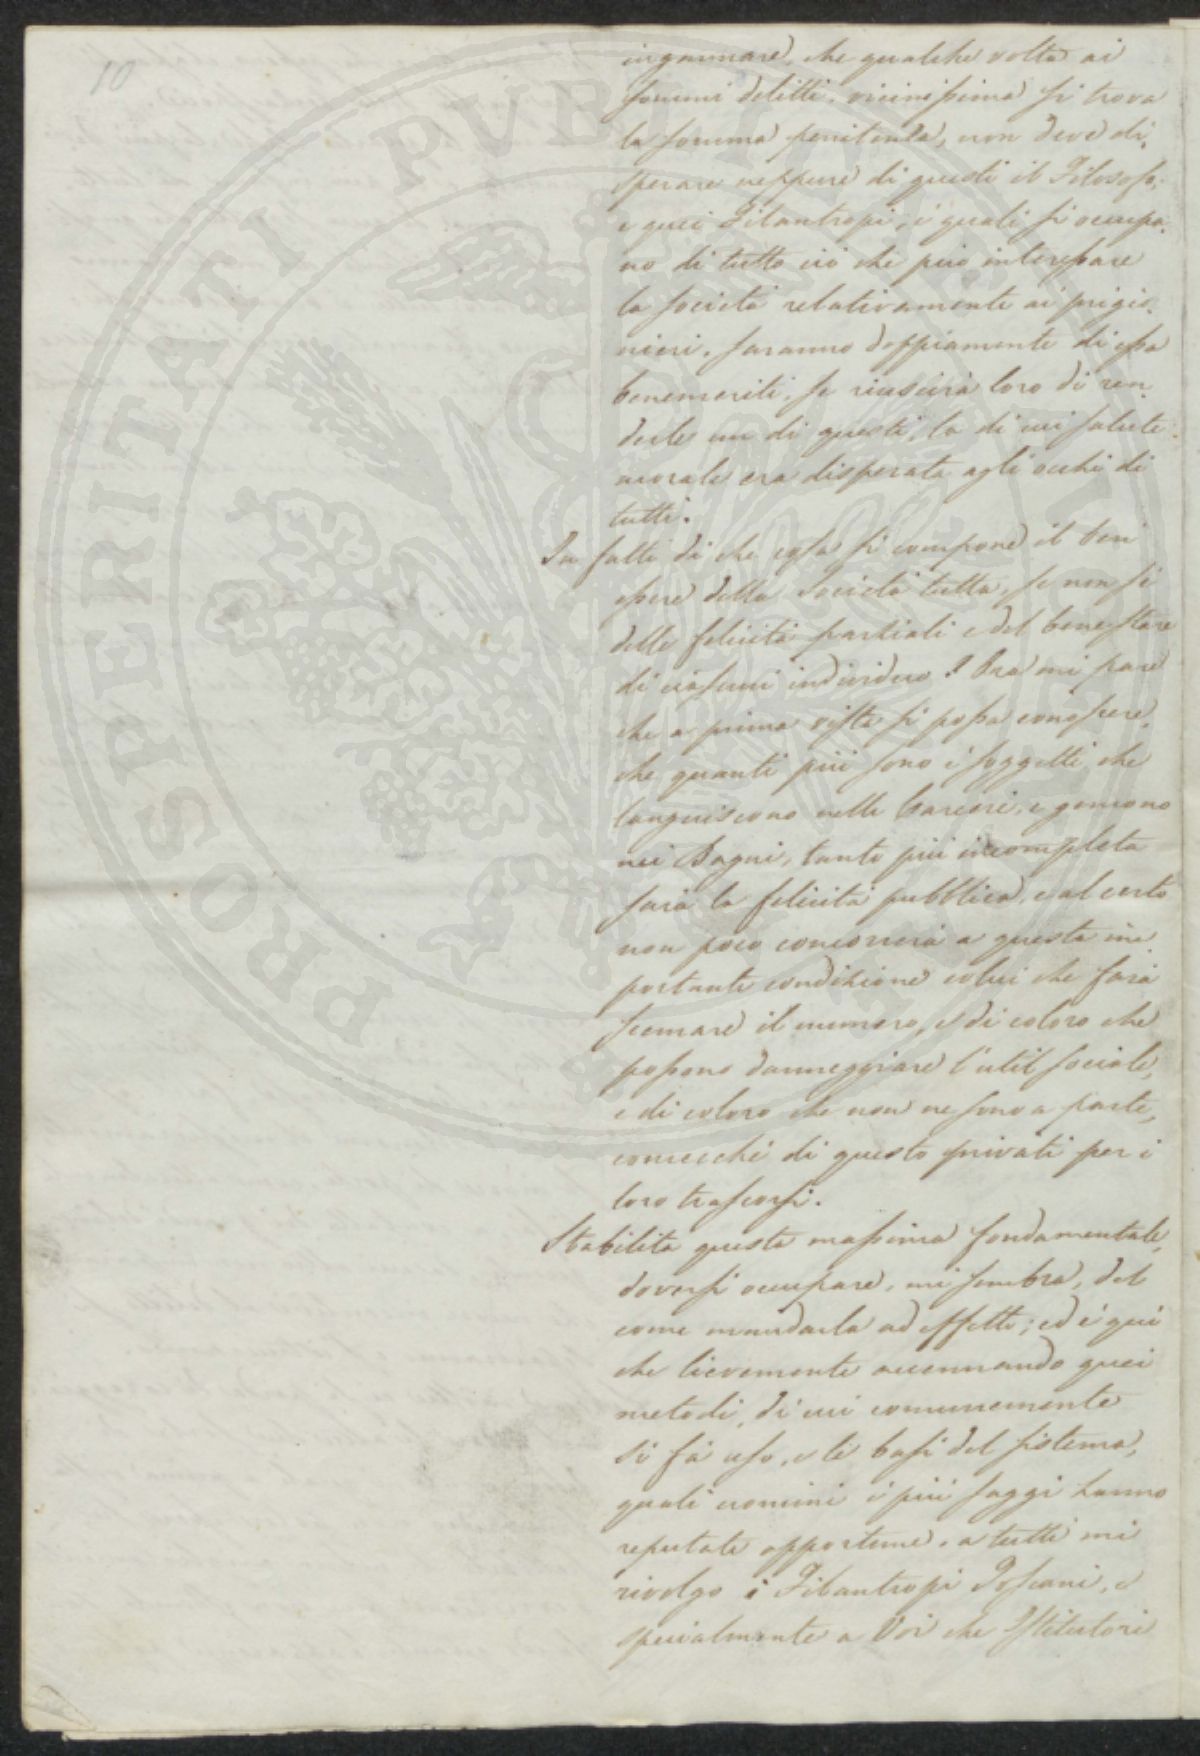 10
ingannare, che qualche volta ai
sommi delitti, vicinissima si trova
la somma penitenza, non deve di,
sperare neppure di questi il Filosofo;
e quei Filantropi, i quali si occupa,
no di tutto ciò che può interessare
la società relativamente ai prigio,
nieri, saranno doppiamente di essa
benemeriti, se riuscirà loro di ren,
derle un di questi, la di cui salute
morale era disperata agli occhi di
tutti.
In fatti di che cosa si compone il ben
essere della Società tutta, se non si
delle felicità parziali e del benestare
di ciascun individuo? Ora mi pare
che a prima vista si possa conoscere,
che quanti più sono i soggetti che
languiscono nelle Carceri, e gemono
nei Bagni, tanto più incompleta
sarà la felicità pubblica, e al certo
non poco concorrerà a questa im
portante condizione colui che farà
scemare il numero, e di coloro che
possono danneggiare l'util sociale,
e di coloro che non ne sono a parte,
comecchè di questo privati per i
loro trascorsi.
Stabilita questa massima fondamentale,
doversi occupare, mi sembra, del
come mandarla ad effetto; ed è quì
che lievemente accennando quei
metodi, di cui comunemente
si fà uso, e le basi del sistema,
quali uomini i più saggi hanno
reputate opportune, a tutti mi
rivolgo i Filantropi Toscani, e
specialmente a Voi che Istitutori
PROSPERITATI PUBLICAE